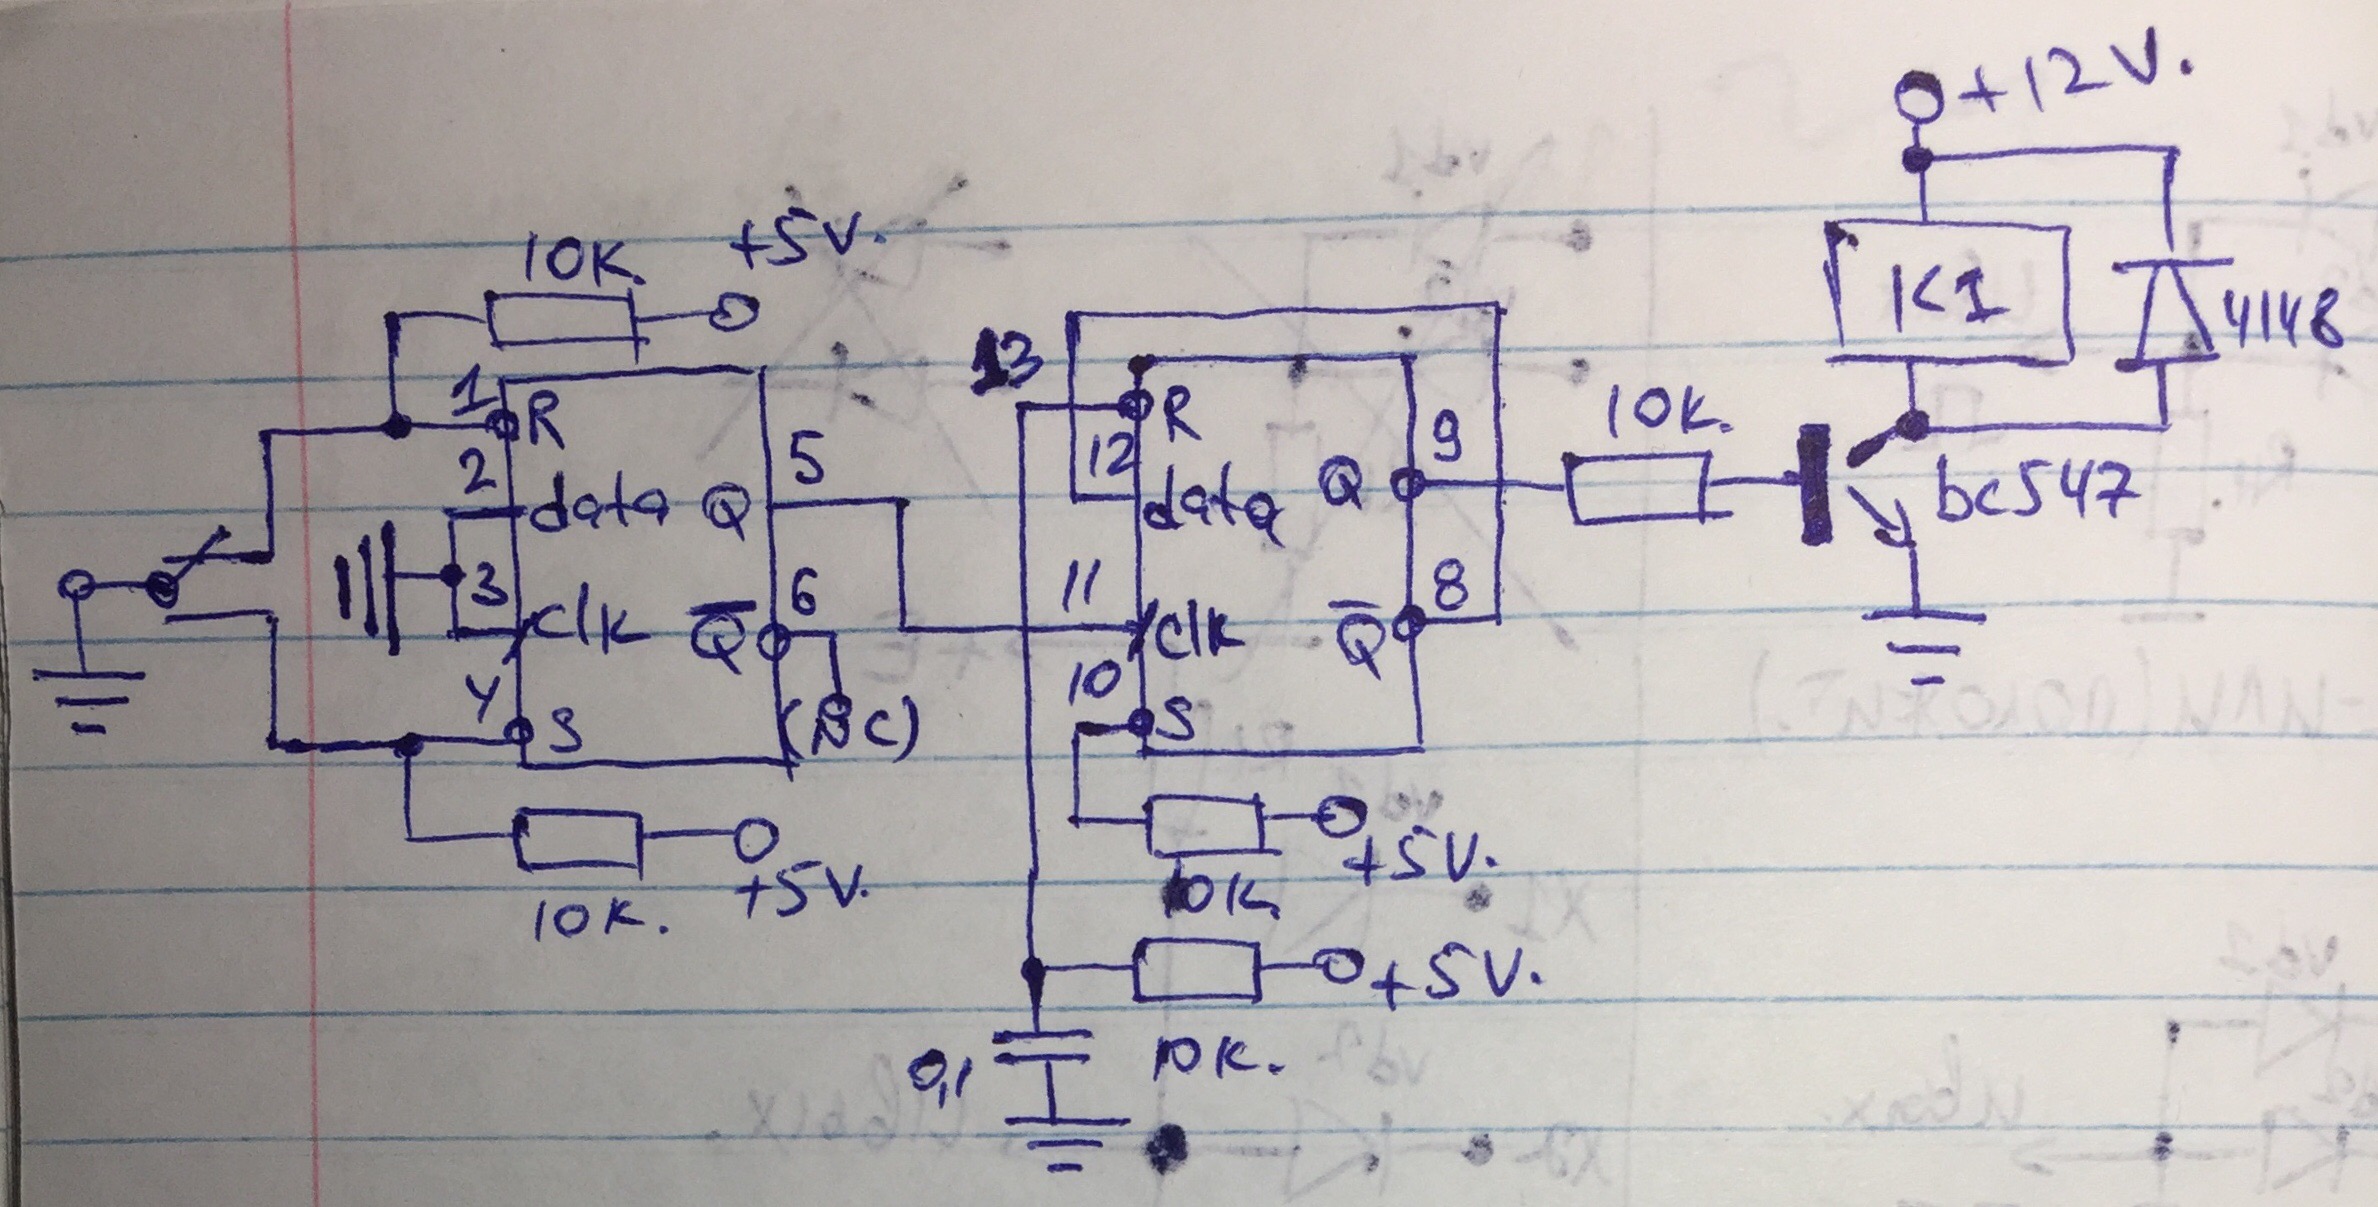 +12V.
10K. +5V.
K1
4148
13
1 R
2 data Q 5
3 clk Q̅ 6
4 S (NC)
10K. +5V.
R
12 data Q 9
11 clk Q̅ 8
10 S
10K. +5V.
10K. +5V.
0,1
10K.
bc547